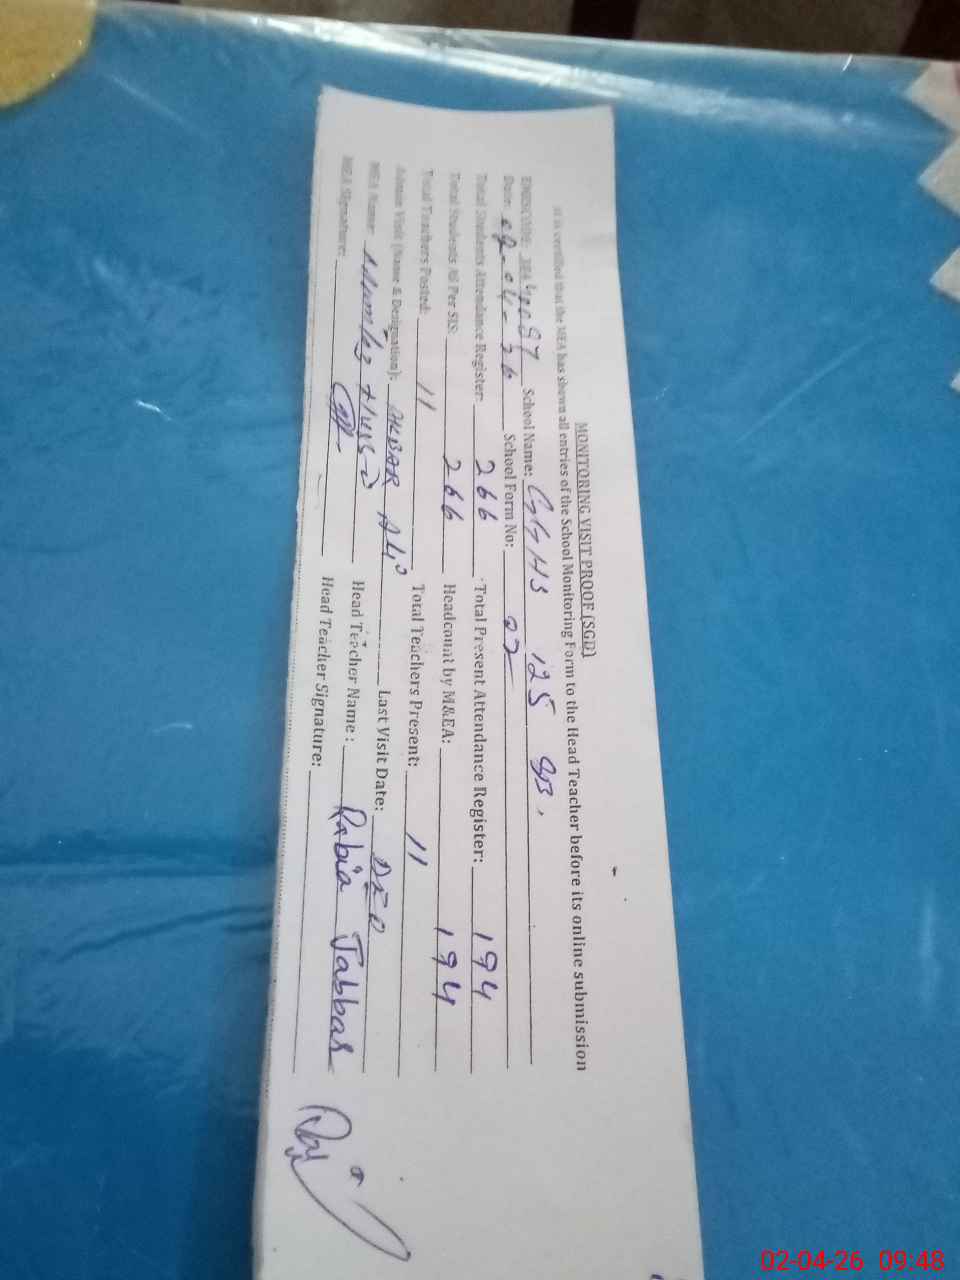 MONITORING VISIT PROOF (SGD)
It is certified that the MEA has shown all entries of the School Monitoring Form to the Head Teacher before its online submission
School Name: GGHS 125 SB.
Date: 02-04-26 School Form No: 02
Total Students Attendance Register: 266 Total Present Attendance Register: 194
Total Students as Per SIS: 266 Headcount by M&EA: 194
Total Teachers Posted: 11 Total Teachers Present: 11
Admin Visit (Name & Designation): AKBAR Ali Last Visit Date: DEO
MEA Name: Mumtaz Hussain Head Teacher Name : Rabia Jabbar
MEA Signature: Head Teacher Signature:
02-04-26 09:48